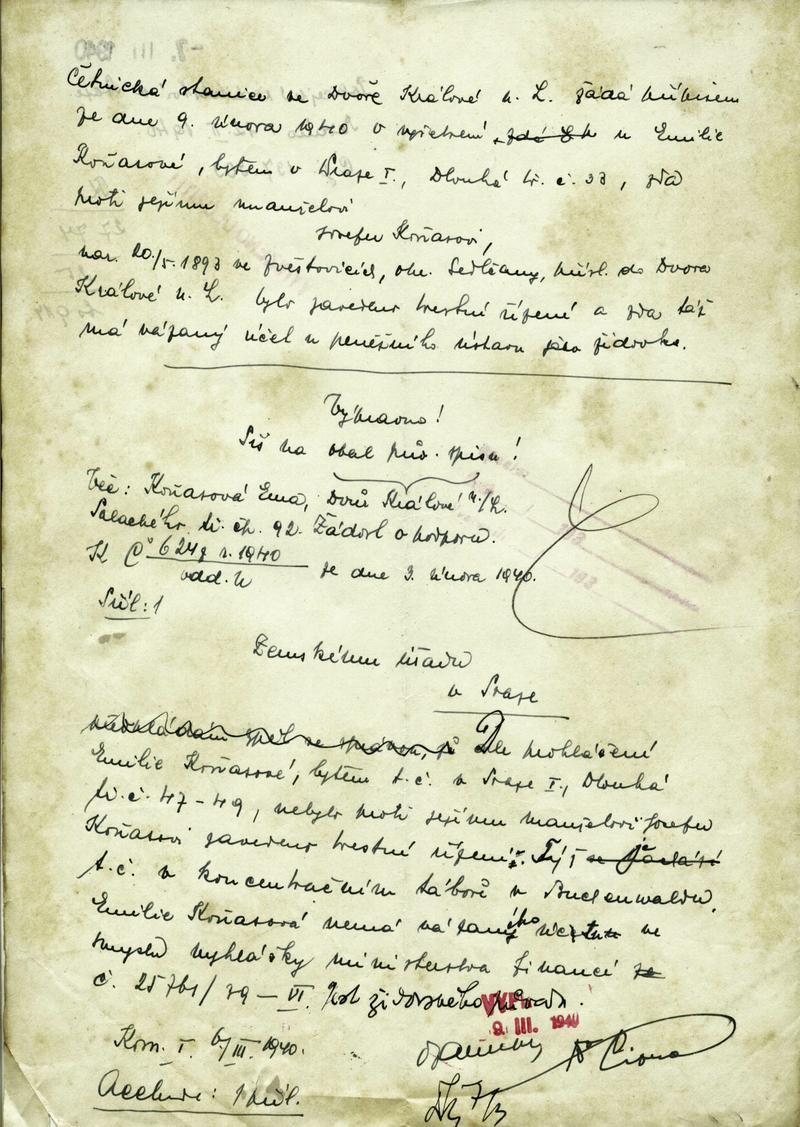 Četnická stanice ve Dvoře Králové n. L. žádá přípisem
ze dne 9. února 1940 o vyšetření, u Emilie
Koňasové, bytem v Praze I., Dlouhá tř. č. 33, zda
proti jejímu manželovi
Josefu Koňasovi,
nar. 20./5. 1893 ve Zvěstovicích, okr. Sedlčany, přísl. do Dvora
Králové n. L. bylo zavedeno trestní řízení a zda táž
má vázaný účet u peněžního ústavu jako židovka.
Výpravno!
Piš na obal pův. spisu!
Věc: Koňasová Ema, Dvůr Králové n./L.
Palackého tř. čp. 92. Žádost o podporu.
K Č 624 z r. 1940
odd. ze dne 3. února 1940.
Příl: 1
Zemskému úřadu
v Praze
Dle prohlášení
Emilie Koňasové, bytem t. č. v Praze I., Dlouhá
tř. č. 47-49, nebylo proti jejímu manželovi Josefu
Koňasovi zavedeno trestní řízení. Týž je
t. č. v koncentračním táboře v Buchenwaldu.
Emilie Koňasová nemá vázaného účtu ve
smyslu vyhlášky ministerstva financí
č. 25761/39 - VI. Jest židovského původu.
9. III. 1940
Kom. I. 6/III. 1940.
Acclude: 1 příl.
7/3